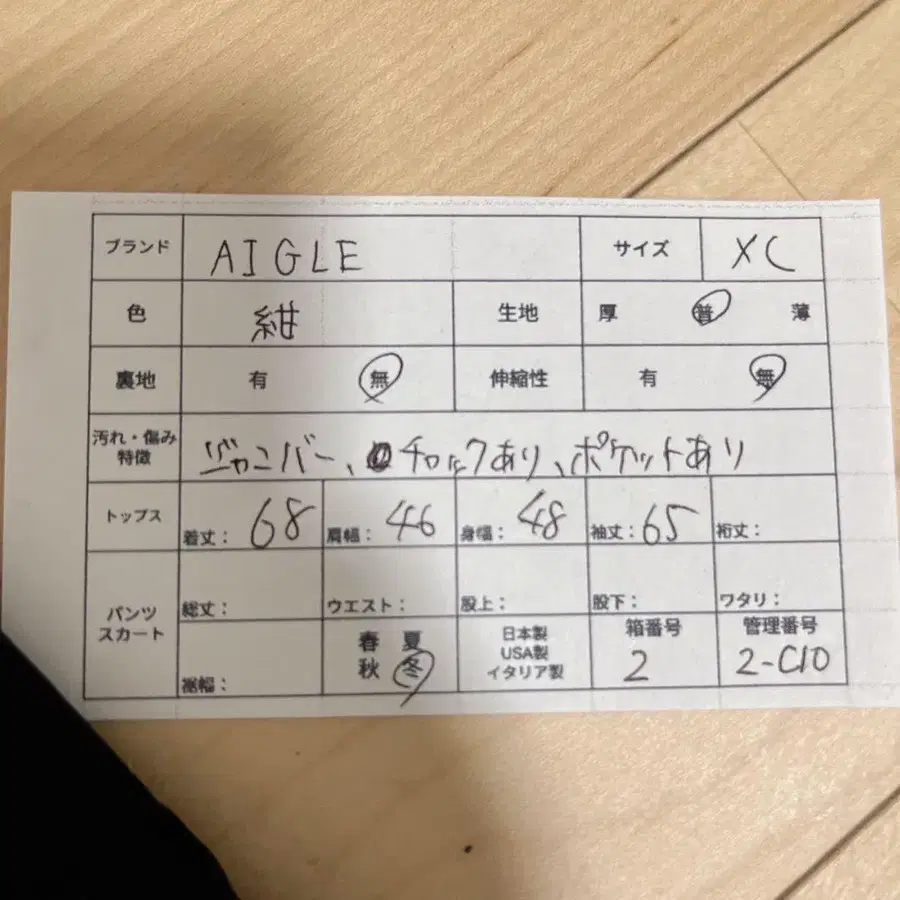 ブランド AIGLE サイズ XL
色 紺 生地 厚 普 薄
裏地 有 無 伸縮性 有 無
汚れ・傷み
特徴 ジャンバー、チャックあり、ポケットあり
トップス 着丈: 68 肩幅: 46 身幅: 48 袖丈: 65 裄丈:
パンツ
スカート
総丈: ウエスト: 股上: 股下: ワタリ:
裾幅:
春 夏
秋 冬
日本製
USA製
イタリア製
箱番号
2
管理番号
2-C10